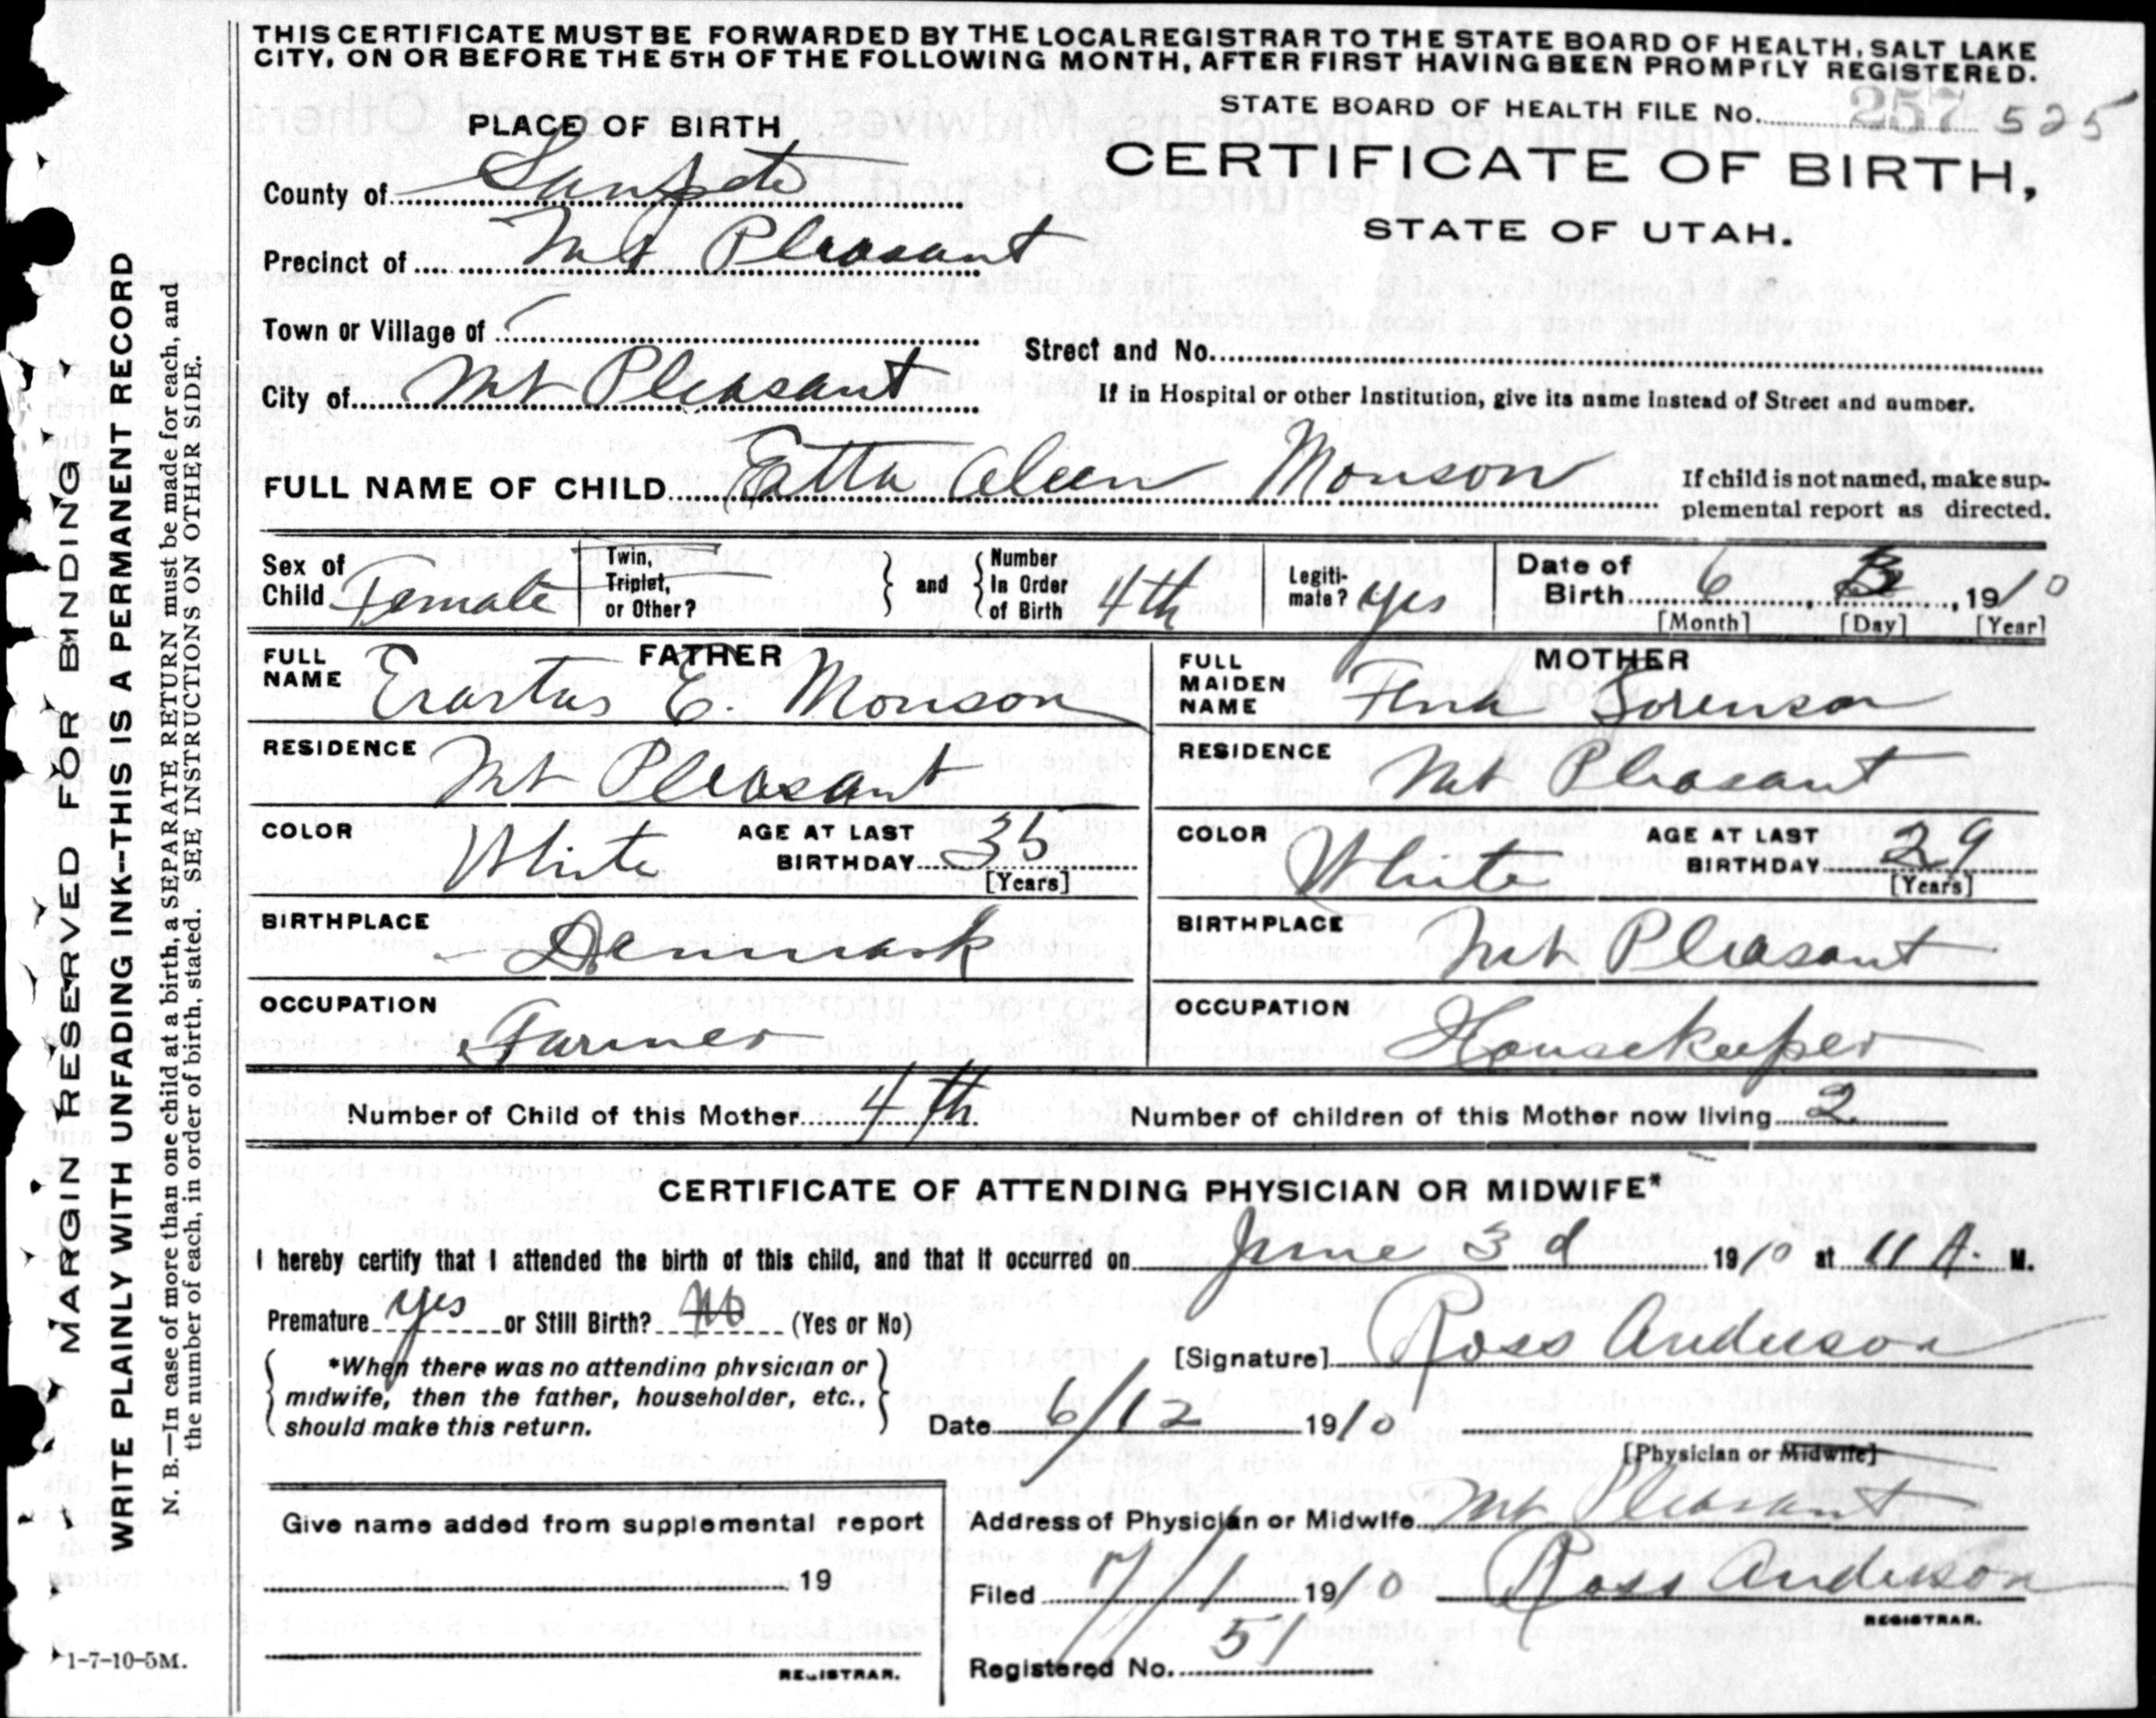 THIS CERTIFICATE MUST BE FORWARDED BY THE LOCAL REGISTRAR TO THE STATE BOARD OF HEALTH, SALT LAKE
CITY, ON OR BEFORE THE 5TH OF THE FOLLOWING MONTH, AFTER FIRST HAVING BEEN PROMPTLY REGISTERED.
STATE BOARD OF HEALTH FILE No. 257 525
PLACE OF BIRTH
CERTIFICATE OF BIRTH,
STATE OF UTAH.
County of Sanpete
Precinct of Mt Pleasant
Town or Village of
Street and No.
City of Mt Pleasant
If in Hospital or other Institution, give its name instead of Street and number.
FULL NAME OF CHILD Etta Aleen Monson
If child is not named, make sup-
plemental report as directed.
Sex of Child Female
Twin, Triplet, or Other?
and
Number In Order of Birth 4th
Legiti-mate? Yes
Date of Birth 6, 3, 1910
[Month] [Day] [Year]
FATHER
FULL NAME Erastus E. Monson
RESIDENCE Mt Pleasant
COLOR White AGE AT LAST BIRTHDAY 35
[Years]
BIRTHPLACE Denmark
OCCUPATION Farmer
MOTHER
FULL MAIDEN NAME Fena Sorenson
RESIDENCE Mt Pleasant
COLOR White AGE AT LAST BIRTHDAY 29
[Years]
BIRTHPLACE Mt Pleasant
OCCUPATION Housekeeper
Number of Child of this Mother 4th
Number of children of this Mother now living 2
CERTIFICATE OF ATTENDING PHYSICIAN OR MIDWIFE*
I hereby certify that I attended the birth of this child, and that it occurred on June 3d 1910 at 11 A. M.
Premature yes or Still Birth? No (Yes or No)
*When there was no attending physician or
midwife, then the father, householder, etc.,
should make this return.
[Signature] Ross Anderson
Date 6/12 1910
[Physician or Midwife]
Give name added from supplemental report
19
REGISTRAR.
Address of Physician or Midwife Mt Pleasant
Filed 7/1 1910 Ross Anderson
REGISTRAR.
Registered No. 51
MARGIN RESERVED FOR BINDING
WRITE PLAINLY WITH UNFADING INK--THIS IS A PERMANENT RECORD
N. B.—In case of more than one child at a birth, a SEPARATE RETURN must be made for each, and
the number of each, in order of birth, stated. SEE INSTRUCTIONS ON OTHER SIDE.
1-7-10-5M.